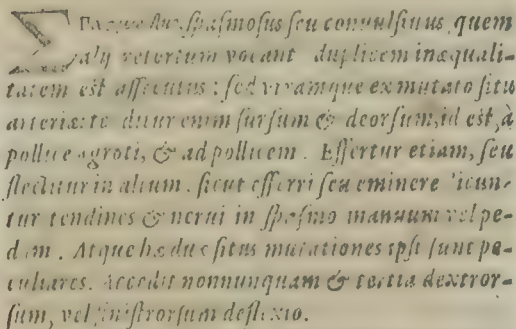 spasmosus seu conuulsiuus, quem
alij retortum vocant duplicem inæquali-
tatem est assecutus: sed vtramque ex mutato situ
arteriæ: enim sursum & deorsum, id est, à
pollice ægroti, & ad pollicem. Effertur etiam, seu
flectitur in altum. sicut efferri seu eminere icun-
tur tendines & nerui in spasmo manuum vel pe-
dum. Atque hæ duæ situs mutationes ipsi sunt pe-
culiares. Accedit nonnunquam & tertia dextror-
sum, vel sinistrorsum deflexio.